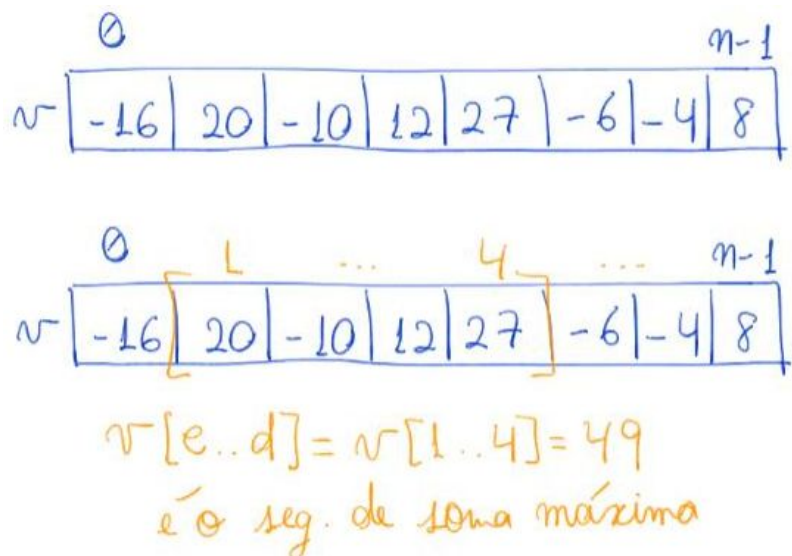 0 n-1
v -16 20 -10 12 27 -6 -4 8
0 1 ... 4 ... n-1
v -16 20 -10 12 27 -6 -4 8
v[e..d] = v[1..4] = 49
é o seg. de soma máxima